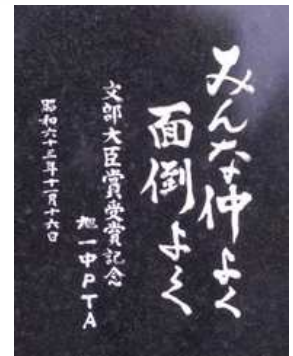 みんな仲よく
面倒よく
文部大臣賞受賞記念
旭一中PTA
昭和六十三年十一月十六日